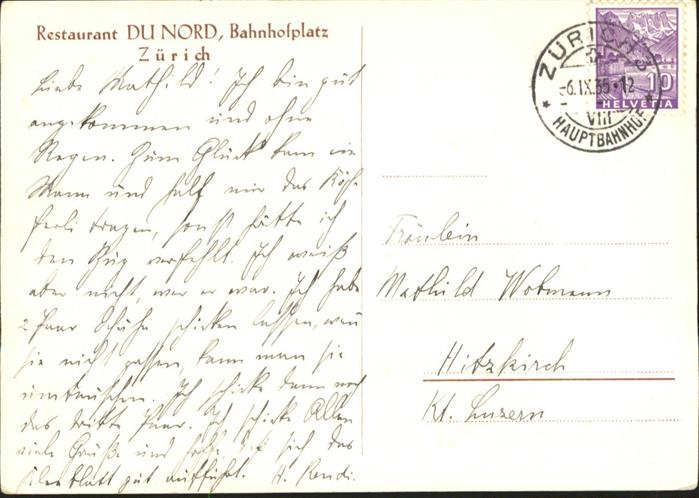 Restaurant DU NORD, Bahnhofplatz
Zürich
Liebe Mathild! Ich bin gut
angekommen und ohne
Regen. Zum Glück kam ein
Mann und half mir das Köf-
ferli tragen, sonst hätte ich
den Zug verfehlt. Ich weiß
aber nicht, wer er war. Ich habe
2 Paar Schuhe schicken lassen, wenn
sie nicht passen, kann man sie
umtauschen. Ich schicke dann noch
das dritte Paar. Ich schicke Allen
viele Grüße und hoffe daß sich das
Kleeblatt gut aufführt. H.
ZÜRICH
-6.IX.35.-12
VIII
HAUPTBAHNHOF
10
HELVETIA
Fräulein
Mathild Wobmann
Hitzkirch
Kt. Luzern